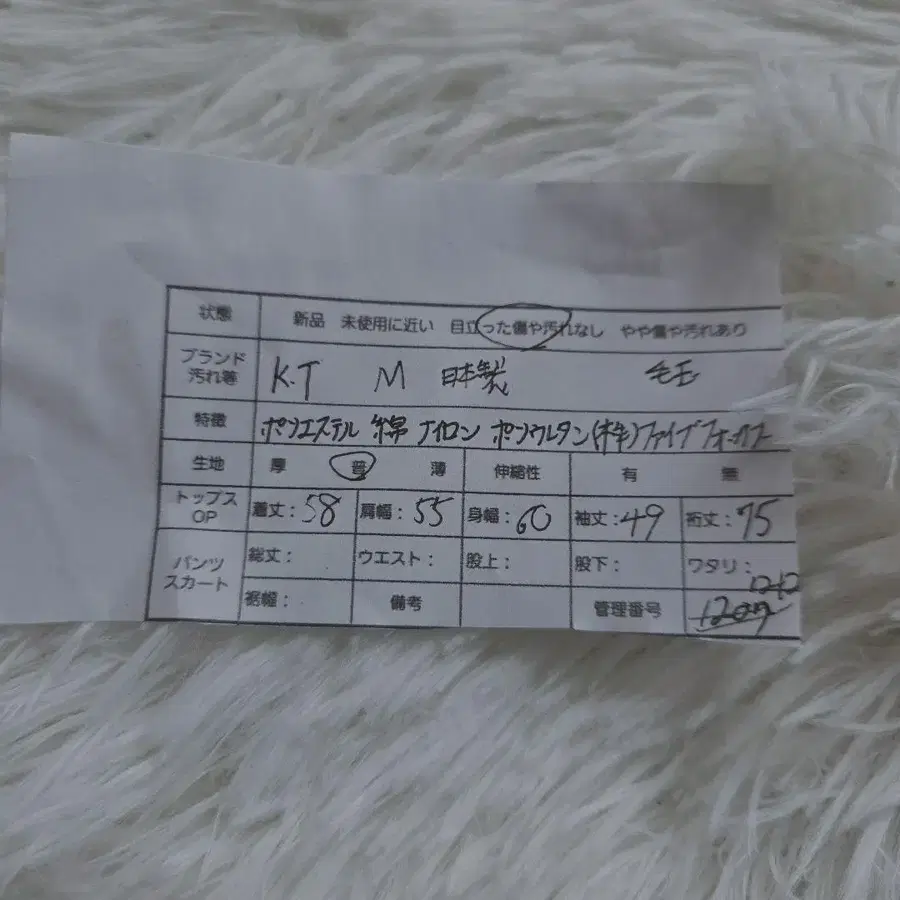 状態 新品 未使用に近い 目立った傷や汚れなし やや傷や汚れあり
ブランド
汚れ等 K.T M 日本製 毛玉
特徴 ポリエステル 綿 ナイロン ポリウレタン(株)ファイブフォーカス
生地 厚 普 薄 伸縮性 有 無
トップス
OP 着丈:58 肩幅:55 身幅:60 袖丈:49 裄丈:75
パンツ
スカート 総丈: ウエスト: 股上: 股下: ワタリ:
裾幅: 備考 管理番号